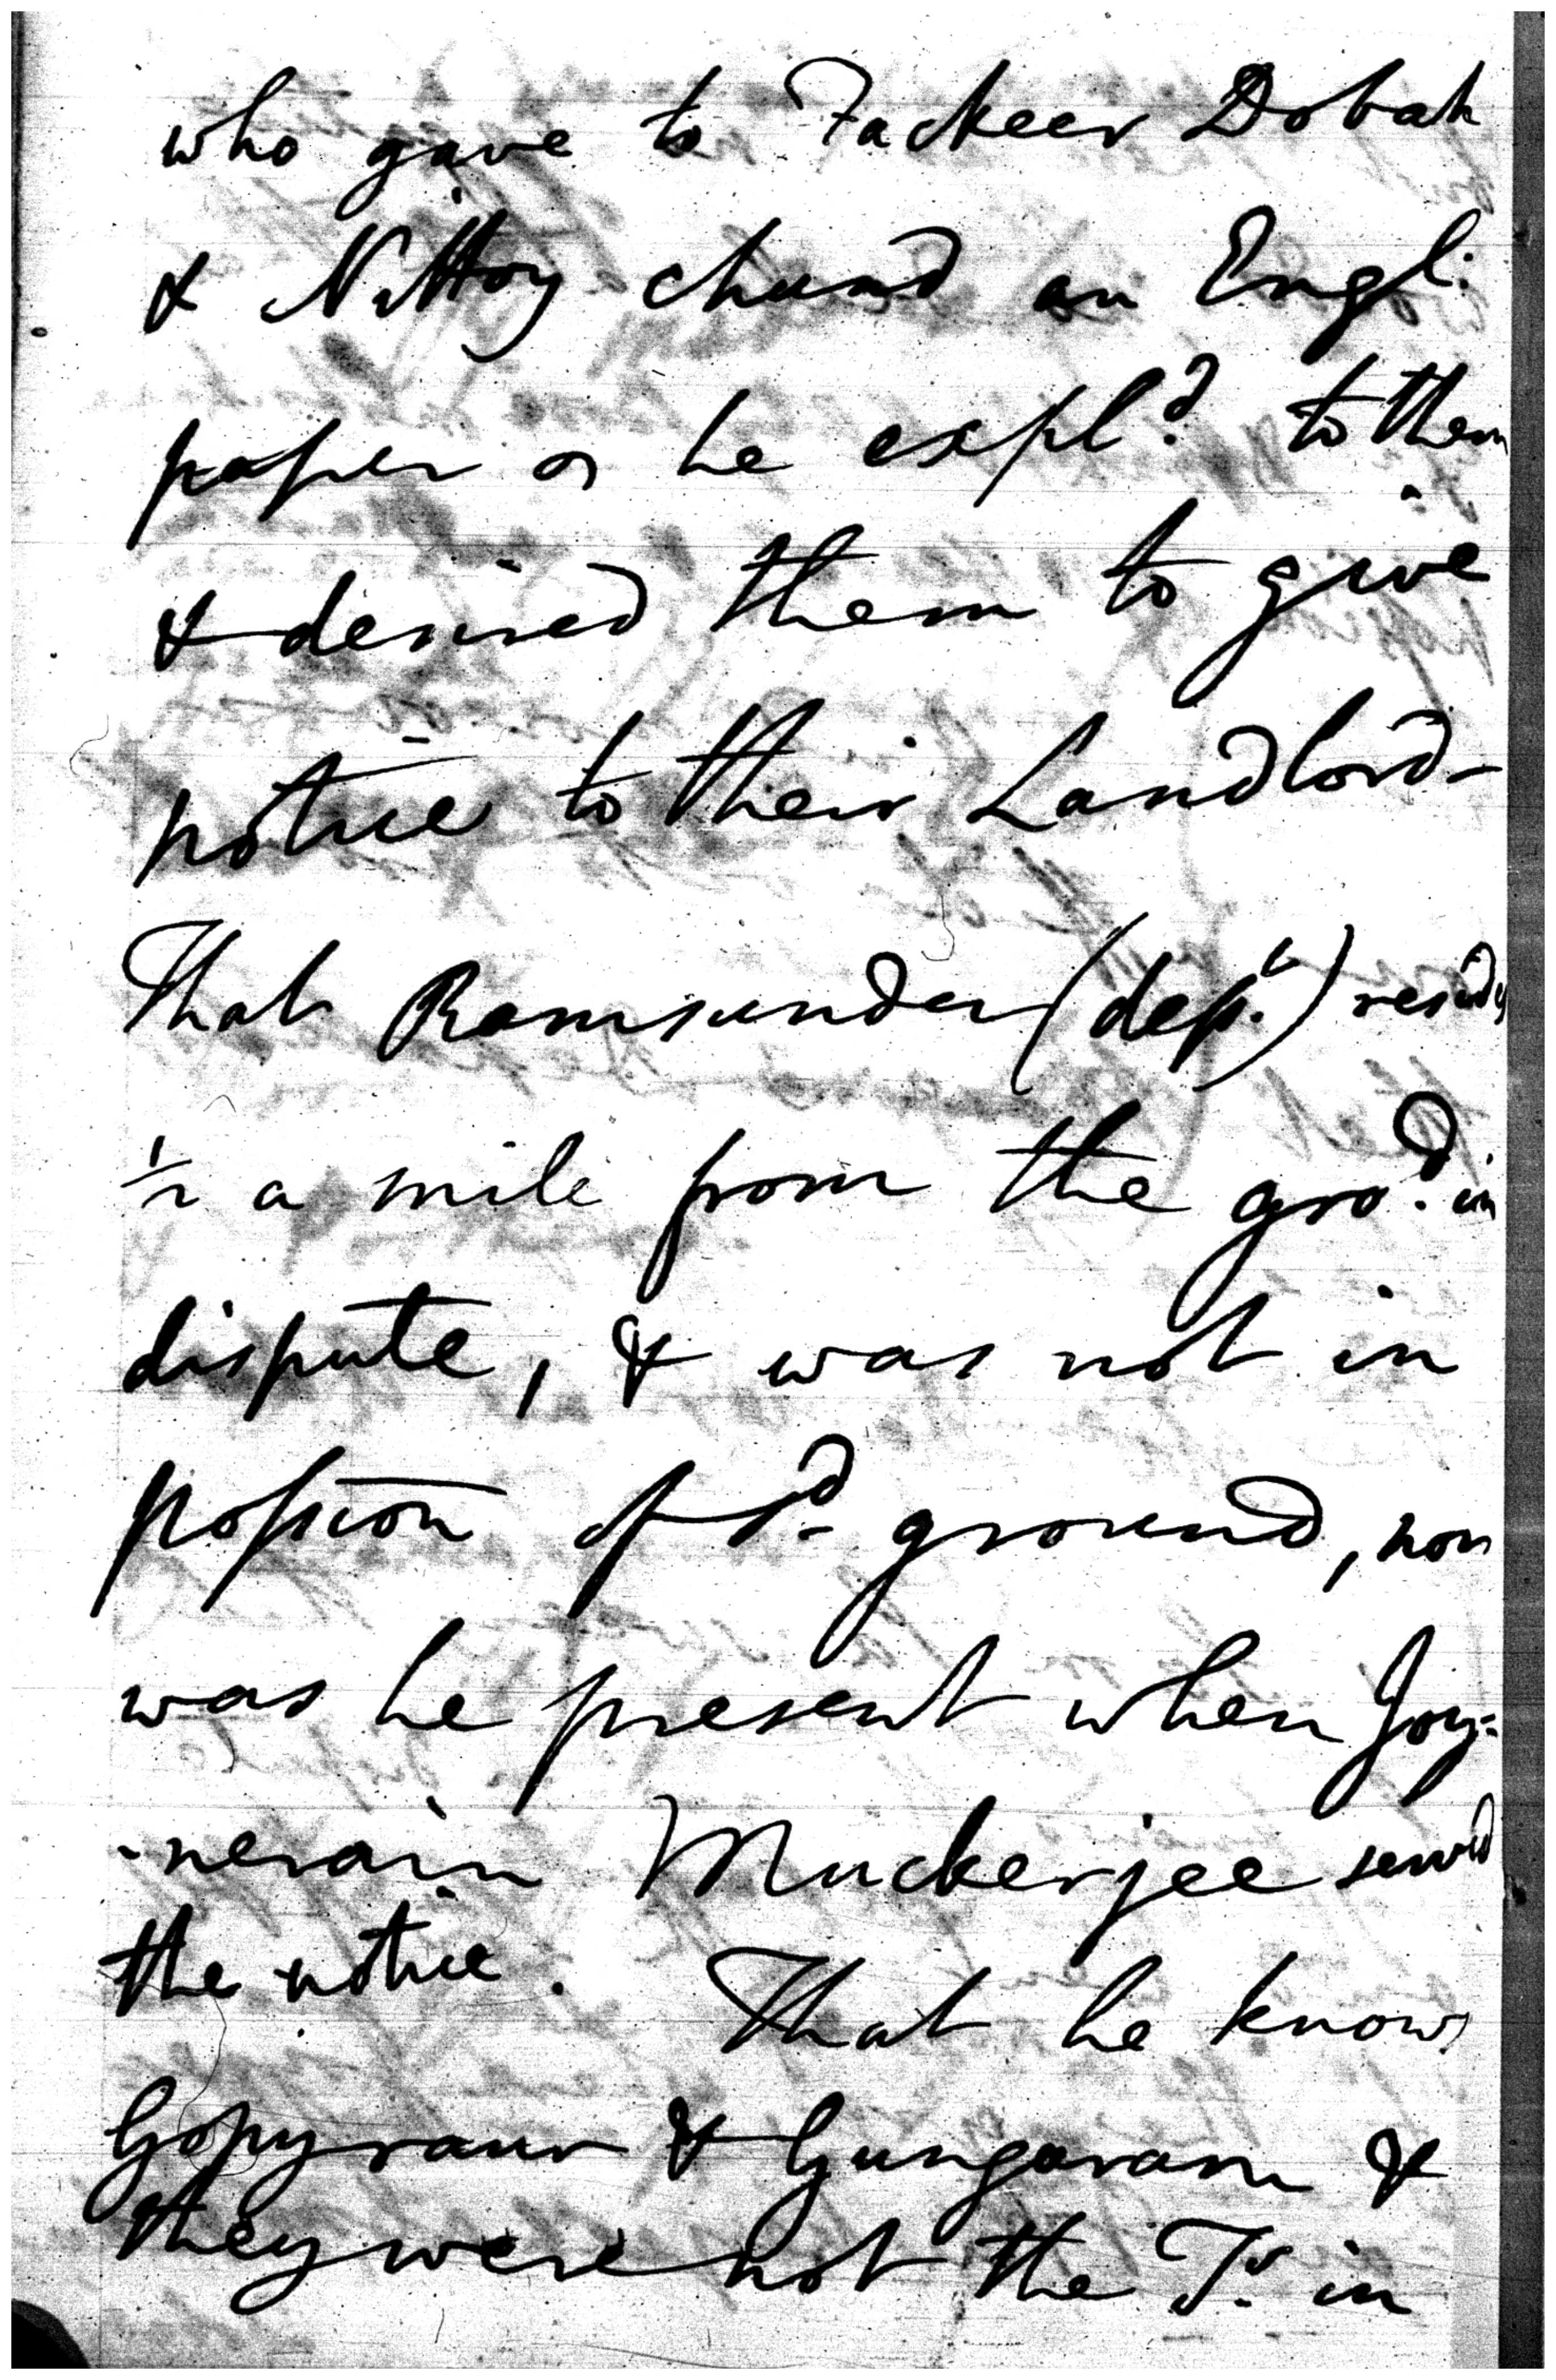 who gave to Fackeer Dobah
& Nittoy chund an Engl:
paper & he expl.d to them
& desired them to give
notice to their Landlord-
That Ramsunder (dep.t) resids
1/2 a mile from the gro.d in
dispute, & was not in
possion of sd ground, nor
was he present when Joy=
-nerain Muckerjee served
the notice. That he knows
Gopyraur & Gungaram &
they were not the Ts. in